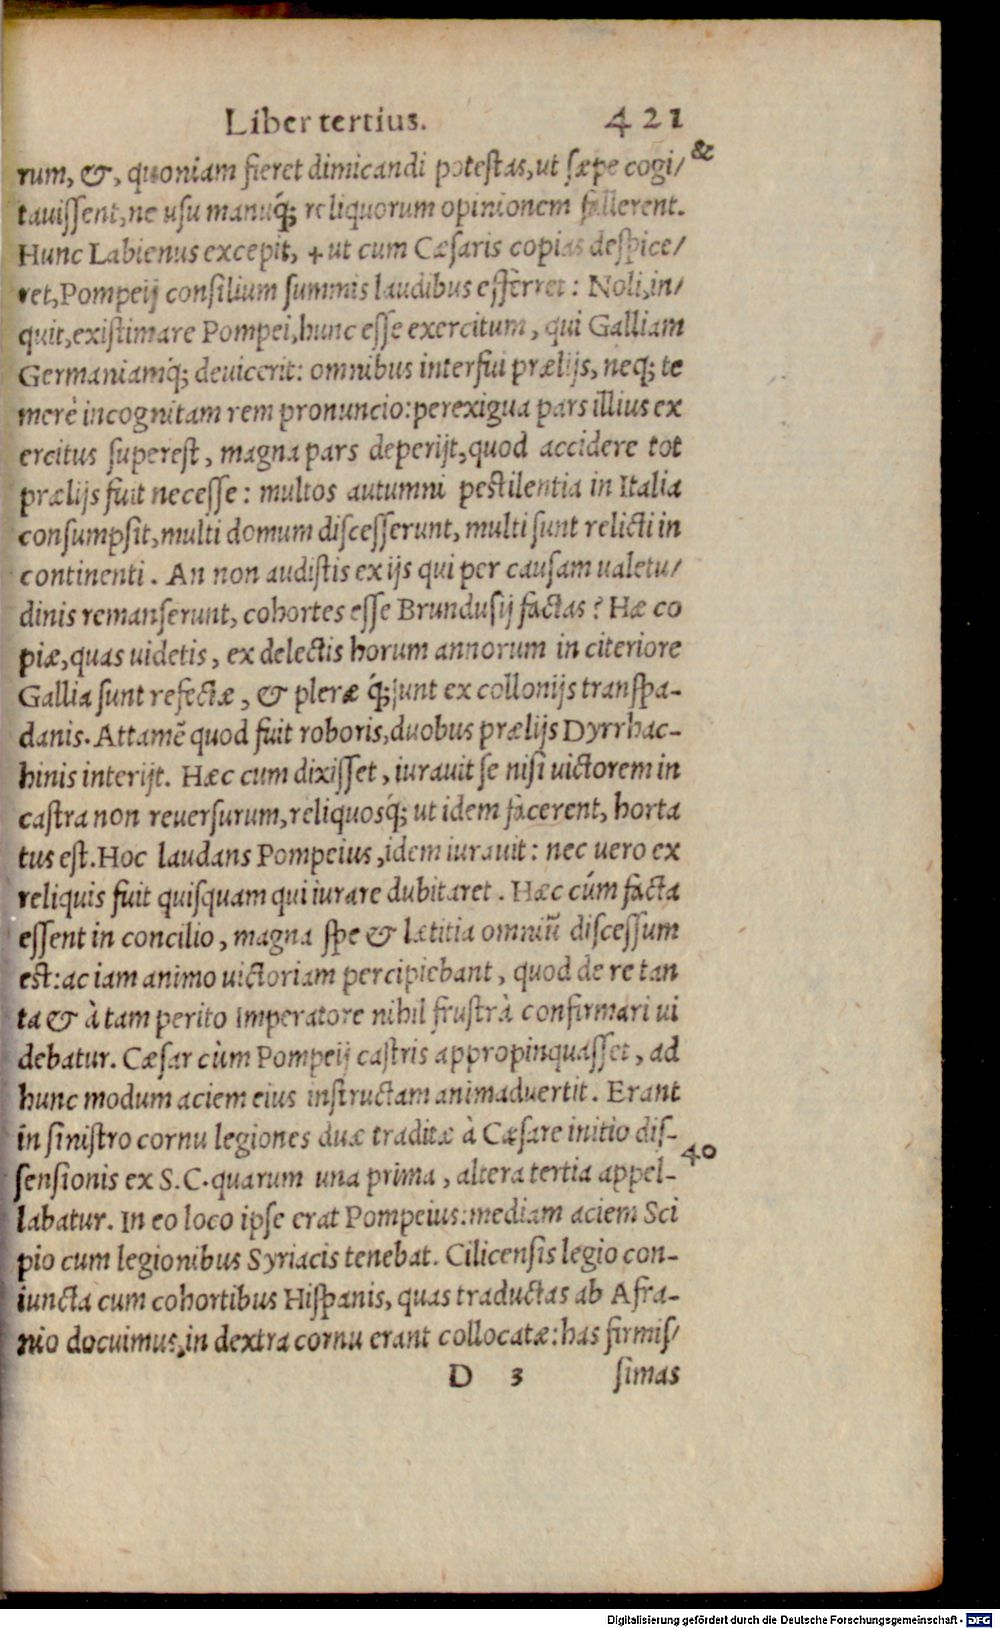 Liber tertius. 421
rum, &, quoniam fieret dimicandi potestas, ut sæpe cogi/ &
tauissent, ne usu manuq́; reliquorum opinionem fallerent.
Hunc Labienus excepit, + ut cum Cæsaris copias despice/
ret, Pompeij consilium summis laudibus efferret: Noli, in/
quit, existimare Pompei, hunc esse exercitum, qui Galliam
Germaniamq́; deuicerit: omnibus interfui prælijs, neq; te
merè incognitam rem pronuncio: perexigua pars illius ex
ercitus superest, magna pars deperijt, quod accidere tot
prælijs fuit necesse: multos autumni pestilentia in Italia
consumpsit, multi domum discesserunt, multi sunt relicti in
continenti. An non audistis ex ijs qui per causam ualetu/
dinis remanserunt, cohortes esse Brundusij factas? Hæ co
piæ, quas uidetis, ex delectis horum annorum in citeriore
Gallia sunt refectæ, & pleræ q́; sunt ex collonijs transpa-
danis. Attamẽ quod fuit roboris, duobus prælijs Dyrrhac-
hinis interijt. Hæc cum dixisset, iurauit se nisi uictorem in
castra non reuersurum, reliquosq́; ut idem facerent, horta
tus est. Hoc laudans Pompeius, idem iurauit: nec uero ex
reliquis fuit quisquam qui iurare dubitaret. Hæc cúm facta
essent in concilio, magna spe & lætitia omniũ discessum
est: ac iam animo uictoriam percipiebant, quod de re tan
ta & à tam perito Imperatore nihil frustrà confirmari ui
debatur. Cæsar cùm Pompeij castris appropinquasset, ad
hunc modum aciem eius instructam animaduertit. Erant
in sinistro cornu legiones duæ traditæ à Cæsare initio dis-
sensionis ex S.C. quarum una prima, altera tertia appel- 40
labatur. In eo loco ipse erat Pompeius: mediam aciem Sci
pio cum legionibus Syriacis tenebat. Cilicensis legio con-
iuncta cum cohortibus Hispanis, quas traductas ab Afra-
nio docuimus, in dextra cornu erant collocatæ: has firmis/
D 3 simas
Digitalisierung gefördert durch die Deutsche Forschungsgemeinschaft - DFG